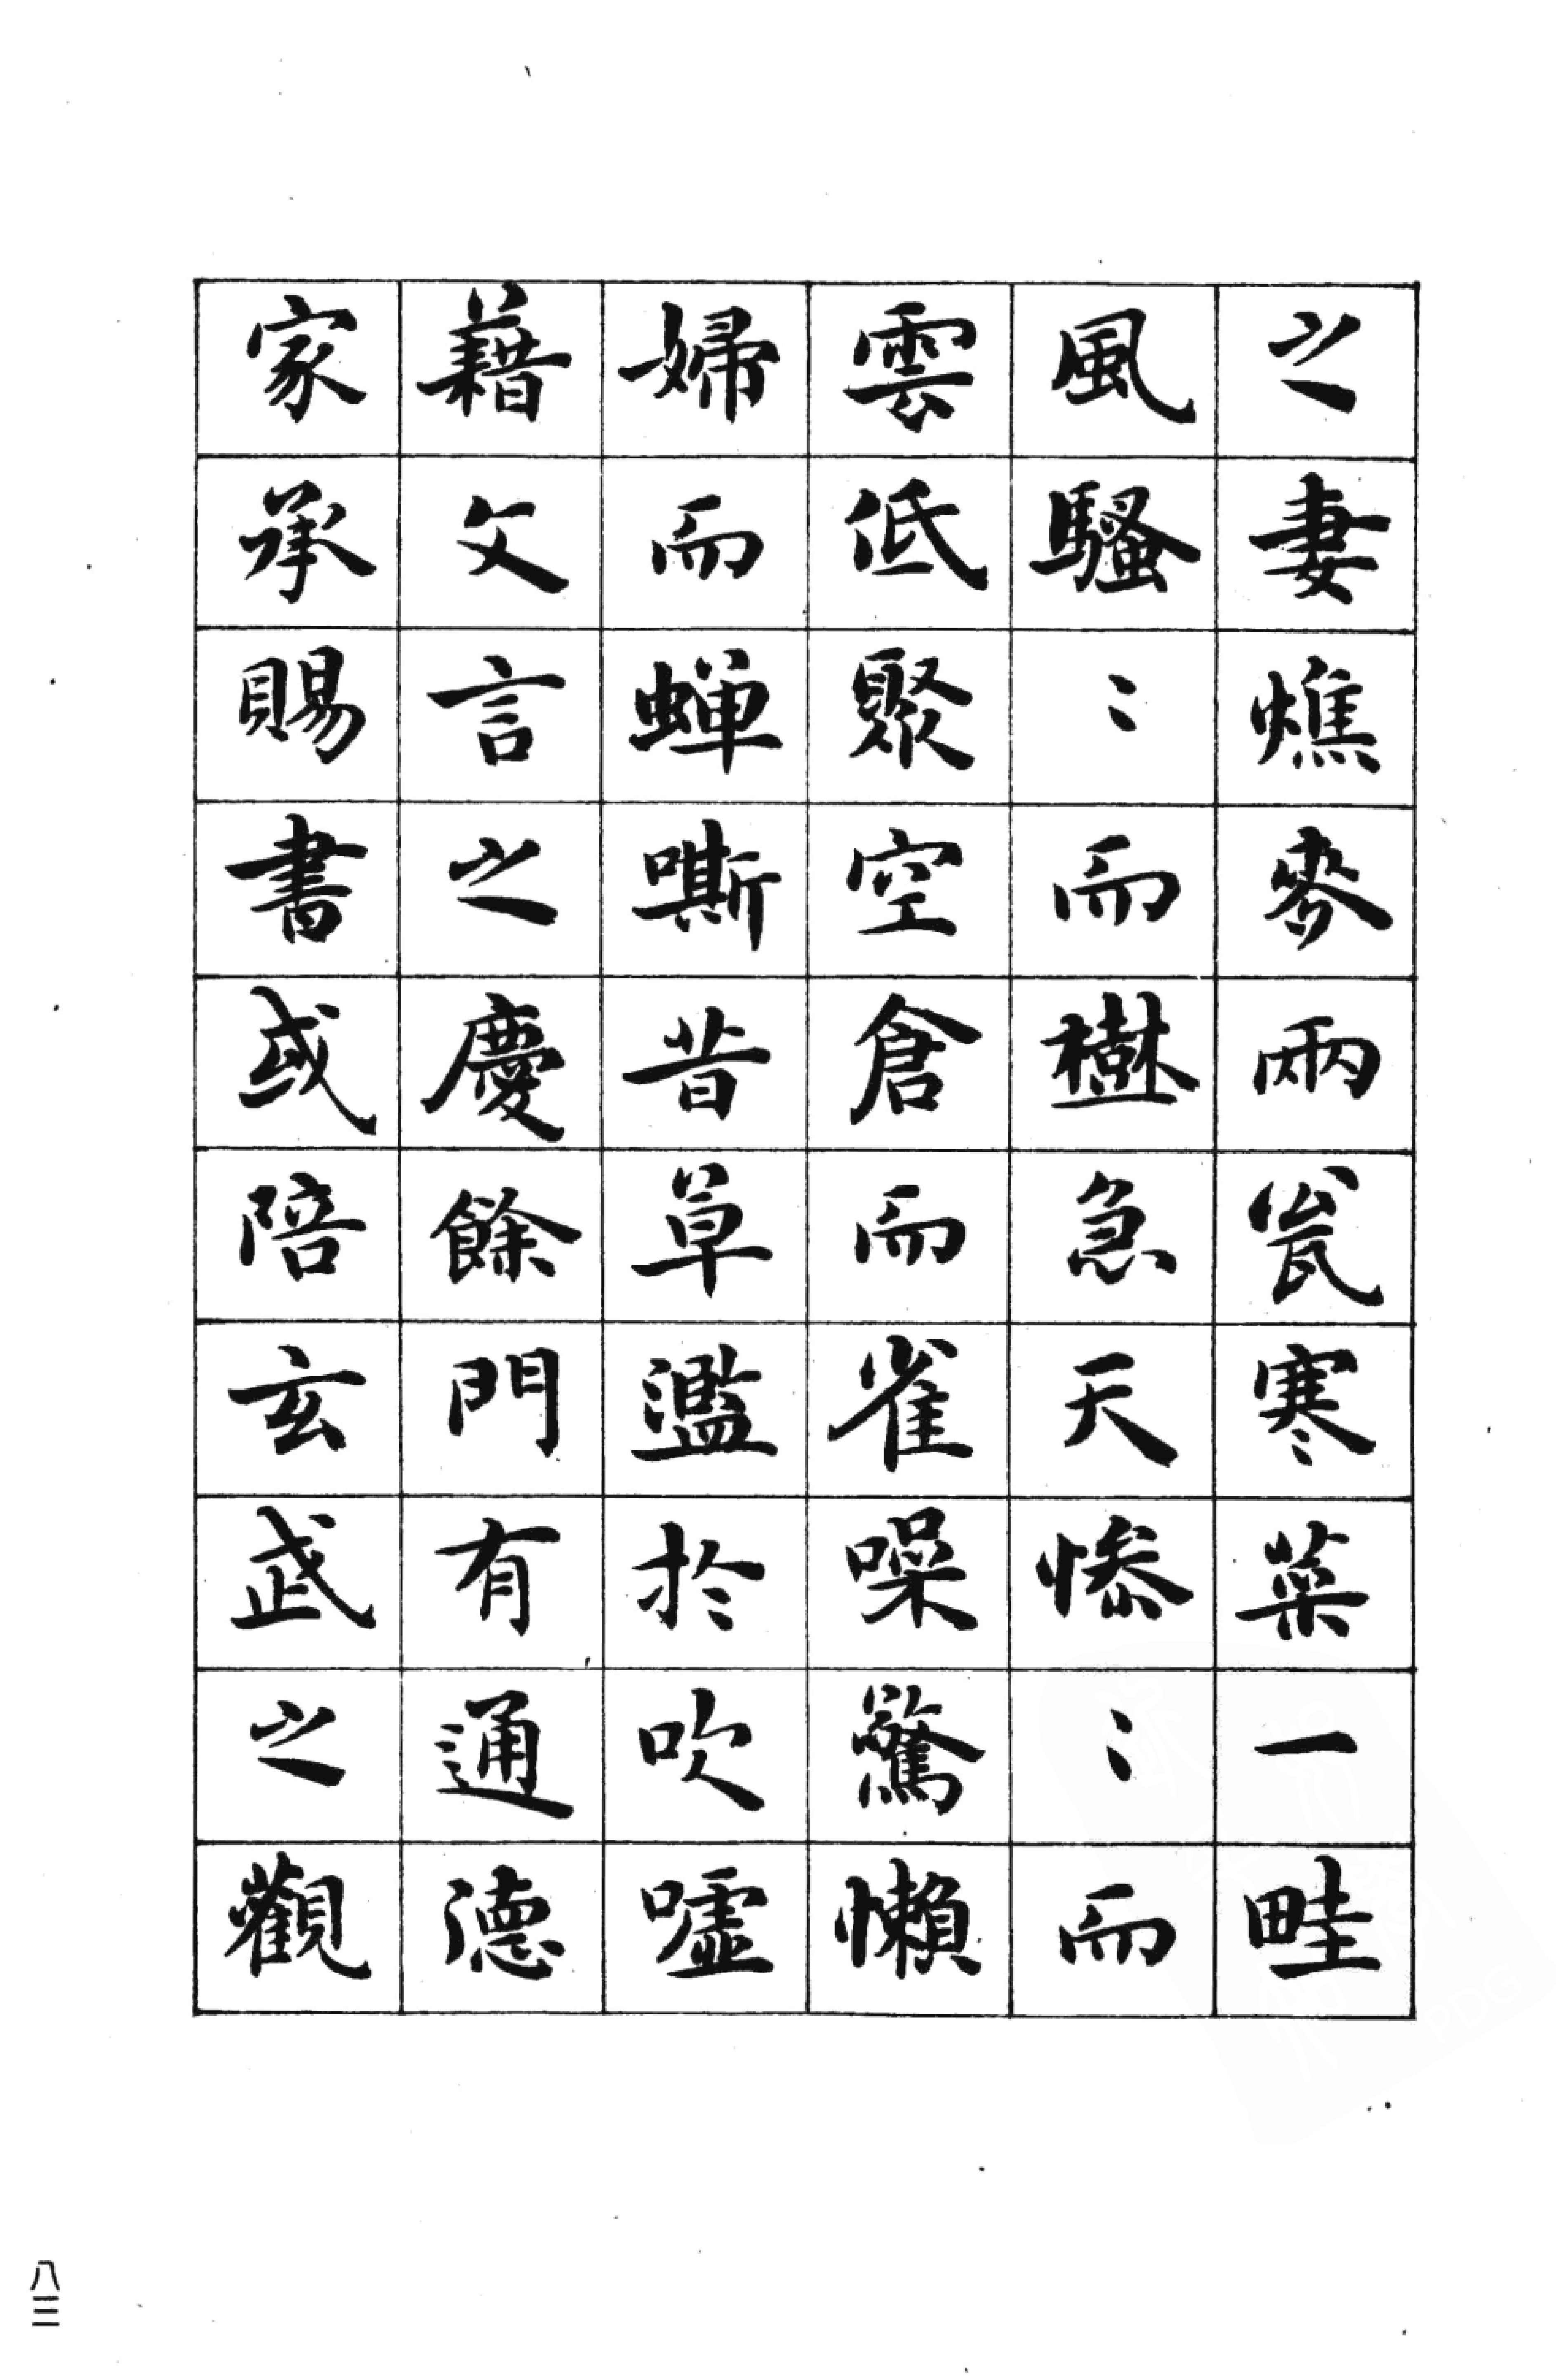 之妻燋麥兩瓮寒菜一畦
風騷〻而樹急天慘〻而
雲低聚空倉而雀噪驚懶
婦而蟬嘶昔草濫於吹噓
藉文言之慶餘門有通德
家承賜書或陪玄武之觀
八三